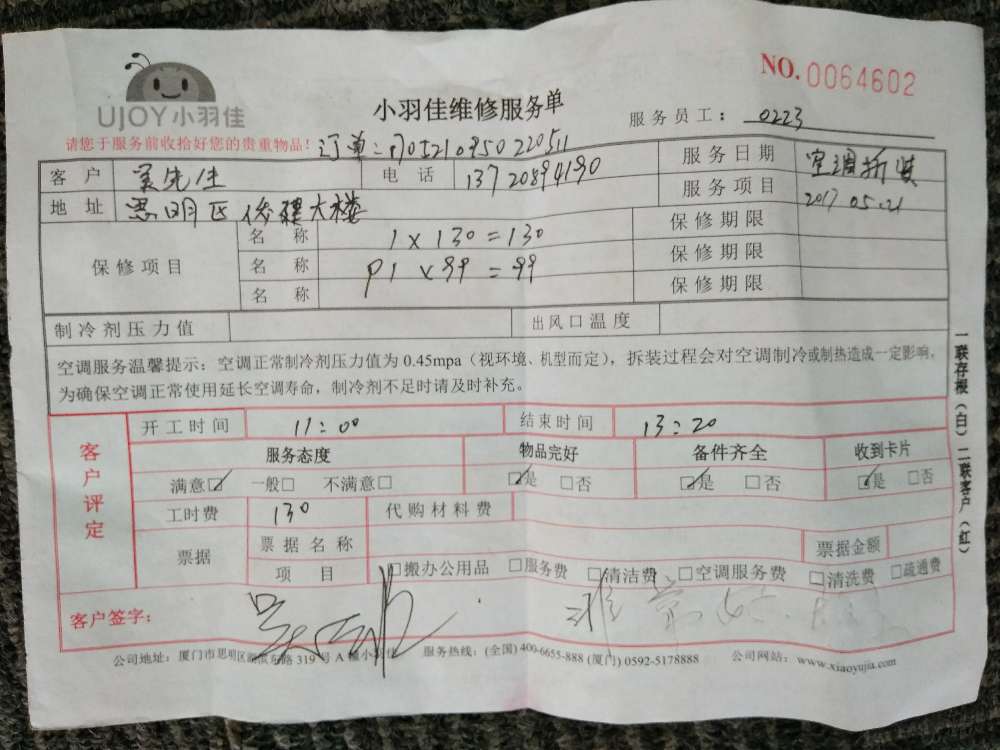 UJOY小羽佳
NO.0064602
小羽佳维修服务单
服务员工： 0223
请您于服务前收拾好您的贵重物品！
订单：
客户 吴先生 电话 13720894190 服务日期 空调拆装
地址 思明区 大楼 服务项目 2017.05.21
保修项目 名称 1×130=130 保修期限
名称 P1×99=99 保修期限
名称 保修期限
制冷剂压力值 出风口温度
空调服务温馨提示：空调正常制冷剂压力值为0.45mpa（视环境、机型而定），拆装过程会对空调制冷或制热造成一定影响，
为确保空调正常使用延长空调寿命，制冷剂不足时请及时补充。
客户评定
开工时间 11:00 结束时间 13:20
服务态度 物品完好 备件齐全 收到卡片
满意☑ 一般□ 不满意□ ☑是 □否 ☑是 □否 ☑是 □否
工时费 130 代购材料费
票据 票据名称 票据金额
项目 □搬办公用品 □服务费 □清洁费 □空调服务费 □清洗费 □疏通费
客户签字：
非常好
公司地址：厦门市思明区湖滨东路319号A
服务热线：(全国) 400-6655-888 (厦门) 0592-5178888
公司网站：www.xiaoyujia.com
一联存根（白）二联客户（红）